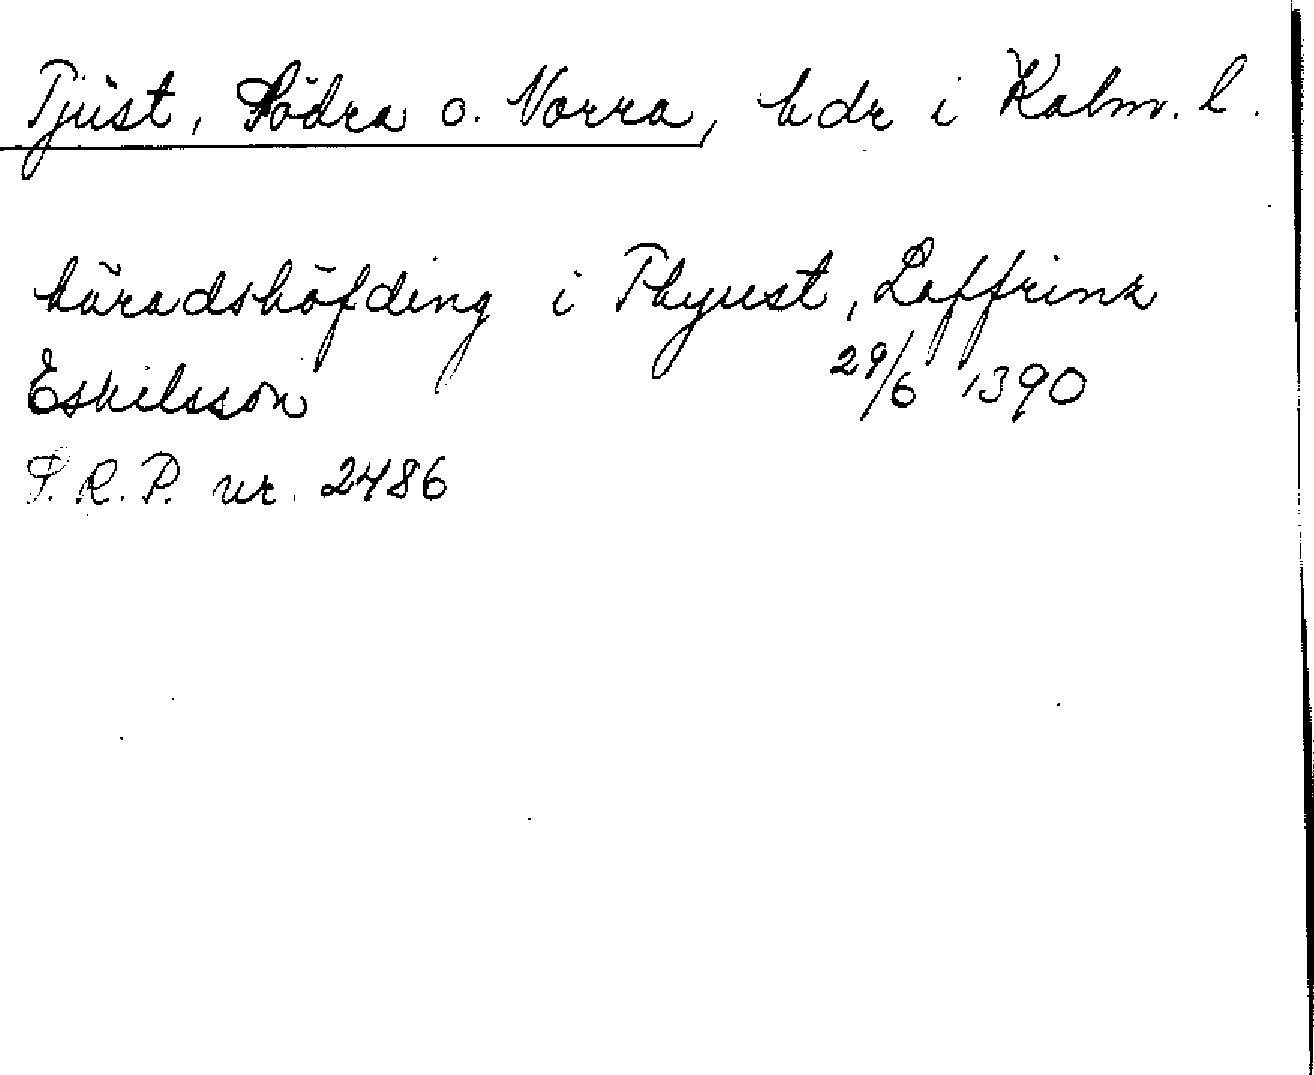 Tjust, Södra o. Norra, hdr i Kalm. l.
häradshöfding i Thyust, Laffrinz
Eskilsson 29/6 1390
S.R.P. nr. 2486